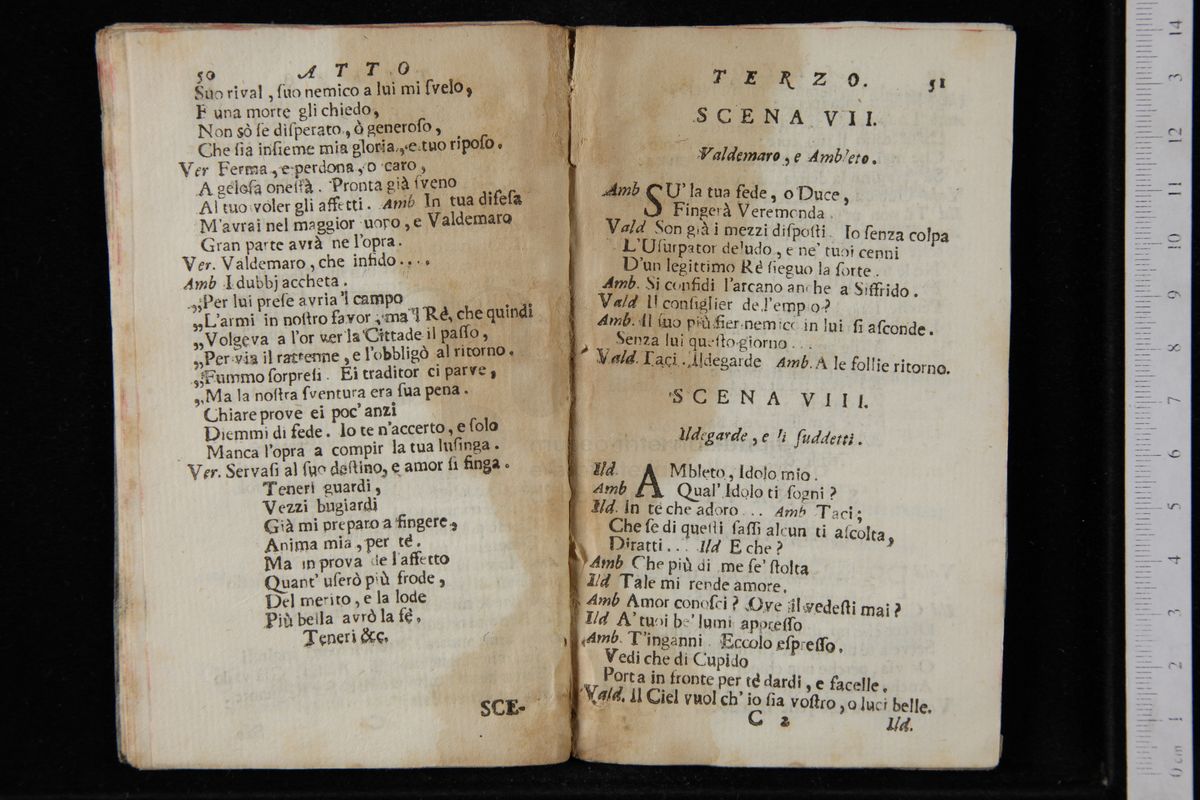 50 ATTO
Suo rival, ſuo nemico a lui mi ſvelo,
E una morte gli chiedo,
Non sò ſe diſperato, ò generoſo,
Che ſia inſieme mia gloria, e tuo ripoſo.
Ver Ferma, e perdona, o caro,
A geloſa oneſtà. Pronta già ſveno
Al tuo voler gli affetti. Amb In tua difeſa
M'avrai nel maggior uopo, e Valdemaro
Gran parte avrà ne l'opra.
Ver. Valdemaro, che infido....
Amb I dubbj accheta.
„Per lui preſe avria 'l campo
„L'armi in noſtro favor; ma 'l Rè, che quindi
„Volgeva a l'or ver la Cittade il paſſo,
„Per via il rattenne, e l'obbligò al ritorno.
„Fummo ſorpreſi. Ei traditor ci parve,
„Ma la noſtra ſventura era ſua pena.
Chiare prove ei poc' anzi
Diemmi di fede. Io te n'accerto, e ſolo
Manca l'opra a compir la tua luſinga.
Ver. Servaſi al ſuo deſtino, e amor ſi finga.
Teneri guardi,
Vezzi bugiardi
Già mi preparo a fingere,
Anima mia, per tè.
Ma in prova de l'affetto
Quant' uſerò più frode,
Del merito, e la lode
Più bella avrò la fè.
Teneri &c.
SCE-
TERZO. 51
SCENA VII.
Valdemaro, e Ambleto.
Amb SU' la tua fede, o Duce,
Fingerà Veremonda.
Vald Son già i mezzi diſpoſti. Io ſenza colpa
L'Uſurpator deludo, e ne' tuoi cenni
D'un legittimo Rè ſieguo la ſorte.
Amb. Si confidi l'arcano anche a Siffrido.
Vald Il conſiglier de l'empio?
Amb. Il ſuo più fier nemico in lui ſi aſconde.
Senza lui queſto giorno...
Vald. Taci. Ildegarde Amb. A le follie ritorno.
SCENA VIII.
Ildegarde, e li ſuddetti.
Ild. AMbleto, Idolo mio.
Amb Qual' Idolo ti ſogni?
Ild. In te che adoro... Amb Taci;
Che ſe di queſti ſaſſi alcun ti aſcolta,
Diratti... Ild E che?
Amb Che più di me ſe' ſtolta
Ild Tale mi rende amore.
Amb Amor conoſci? Ove il vedeſti mai?
Ild A' tuoi be' lumi appreſſo
Amb. T'inganni. Eccolo eſpreſſo.
Vedi che di Cupido
Porta in fronte per tè dardi, e facelle.
Vald. Il Ciel vuol ch' io ſia voſtro, o luci belle.
C 2 Ild.